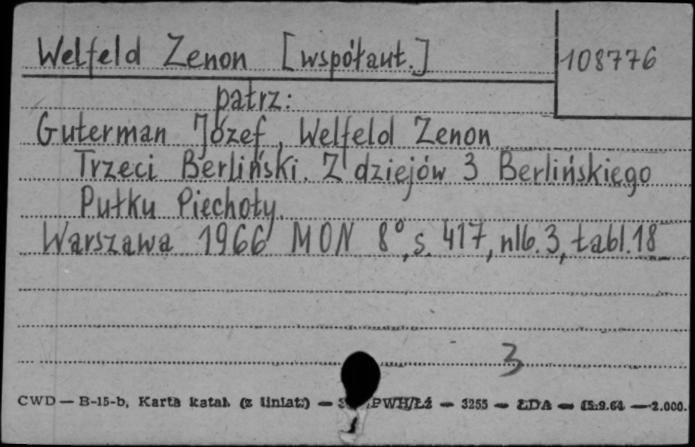 Welfeld Zenon [współaut.] 108776
patrz:
Guterman Józef, Welfeld Zenon
Trzeci Berliński. Z dziejów 3 Berlińskiego
Pułku Piechoty.
Warszawa 1966 MON 8°, s. 417, nlb. 3, tabl. 18
3
CWD — B-15-b, Karta katal. (z liniat.) — PWH/Łż — 3255 — ŁDA — 15.9.64 — 2.000.